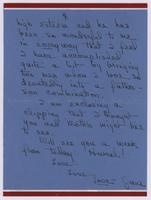 high esteem and he has
been so wonderful to me
in everyway that I feel
I have accomplished
quite a bit by bringing
two men whom I love so
devotedly into a father-
son combination.
I am enclosing a
clipping that I thought
you and might
to see.
Will see you a week
from today. Hurrah!
Love,
June